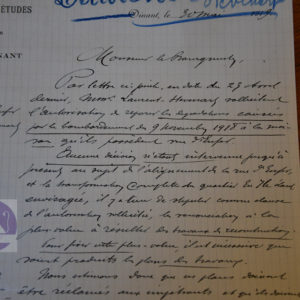 ÉTUDES
NANT
Dinant, le 30 mai 19
Monsieur le Bourgmestre,
Par lettre ci-jointe, en date du 23 Avril
dernier, Laurent sollicitent
l'autorisation de réparer les dégradations causées
par le bombardement du 9 Novembre 1918 à la mai-
son qu'ils possèdent rue d'Enfer
Aucune décision n'étant intervenue jusqu'à
présent au sujet de l'alignement de la rue d'Enfer,
et la transformation complète du quartier
envisagée, il y a lieu de stipuler comme clause
de l'autorisation sollicitée, la renonciation à la
plus-value à résulter des travaux de reconstruction.
Pour fixer cette plus-value, il est nécessaire que
soient produits les plans des travaux.
Nous estimons donc que ces plans doivent
être réclamés aux requérants et qu'ils doivent